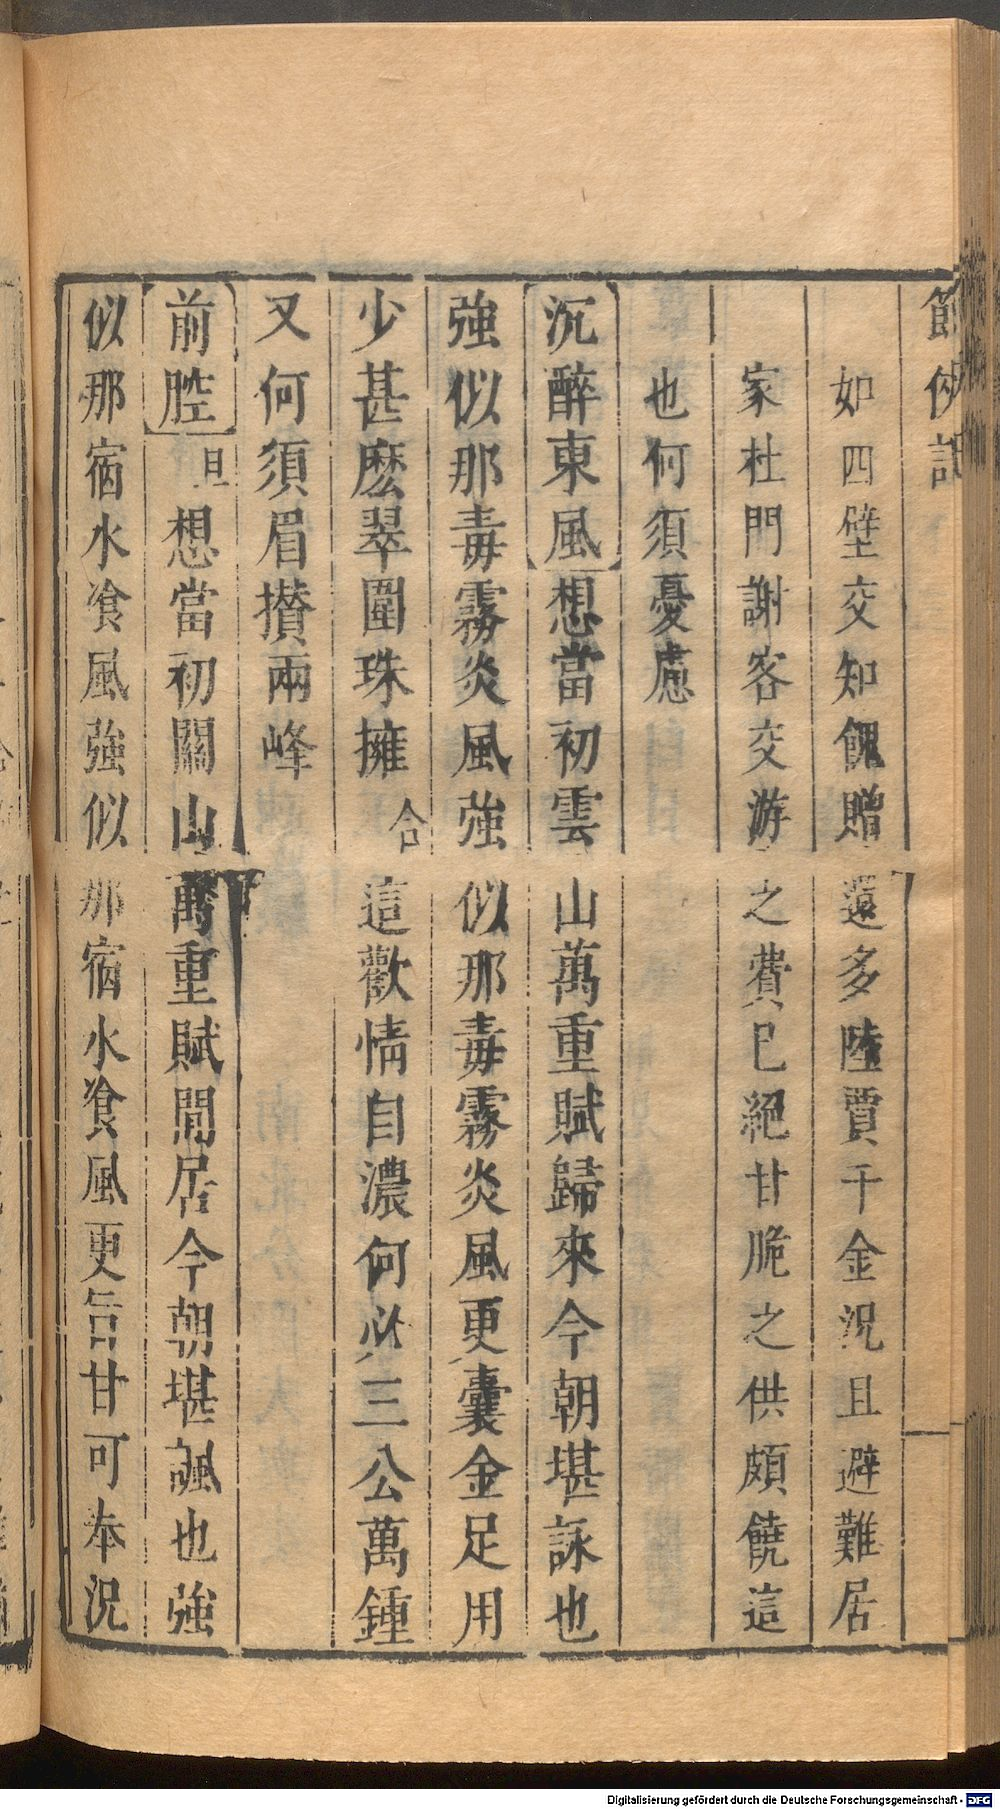 節俠記
如四壁交知餽贈還多陸賈千金況且避難居
家杜門謝客交游之費已絕甘脆之供頗饒這
也何須憂慮
沉醉東風想當初雲山萬重賦歸來今朝堪詠也
強似那毒霧炎風強似那毒霧炎風更囊金足用
少甚麽翠圍珠擁合這歡情自濃何必三公萬鍾
又何須眉攢兩峰
前腔旦想當初關山萬重賦閒居今朝堪諷也強
似那宿水飡風強似那宿水飡風更旨甘可奉況
Digitalisierung gefördert durch die Deutsche Forschungsgemeinschaft - DFG